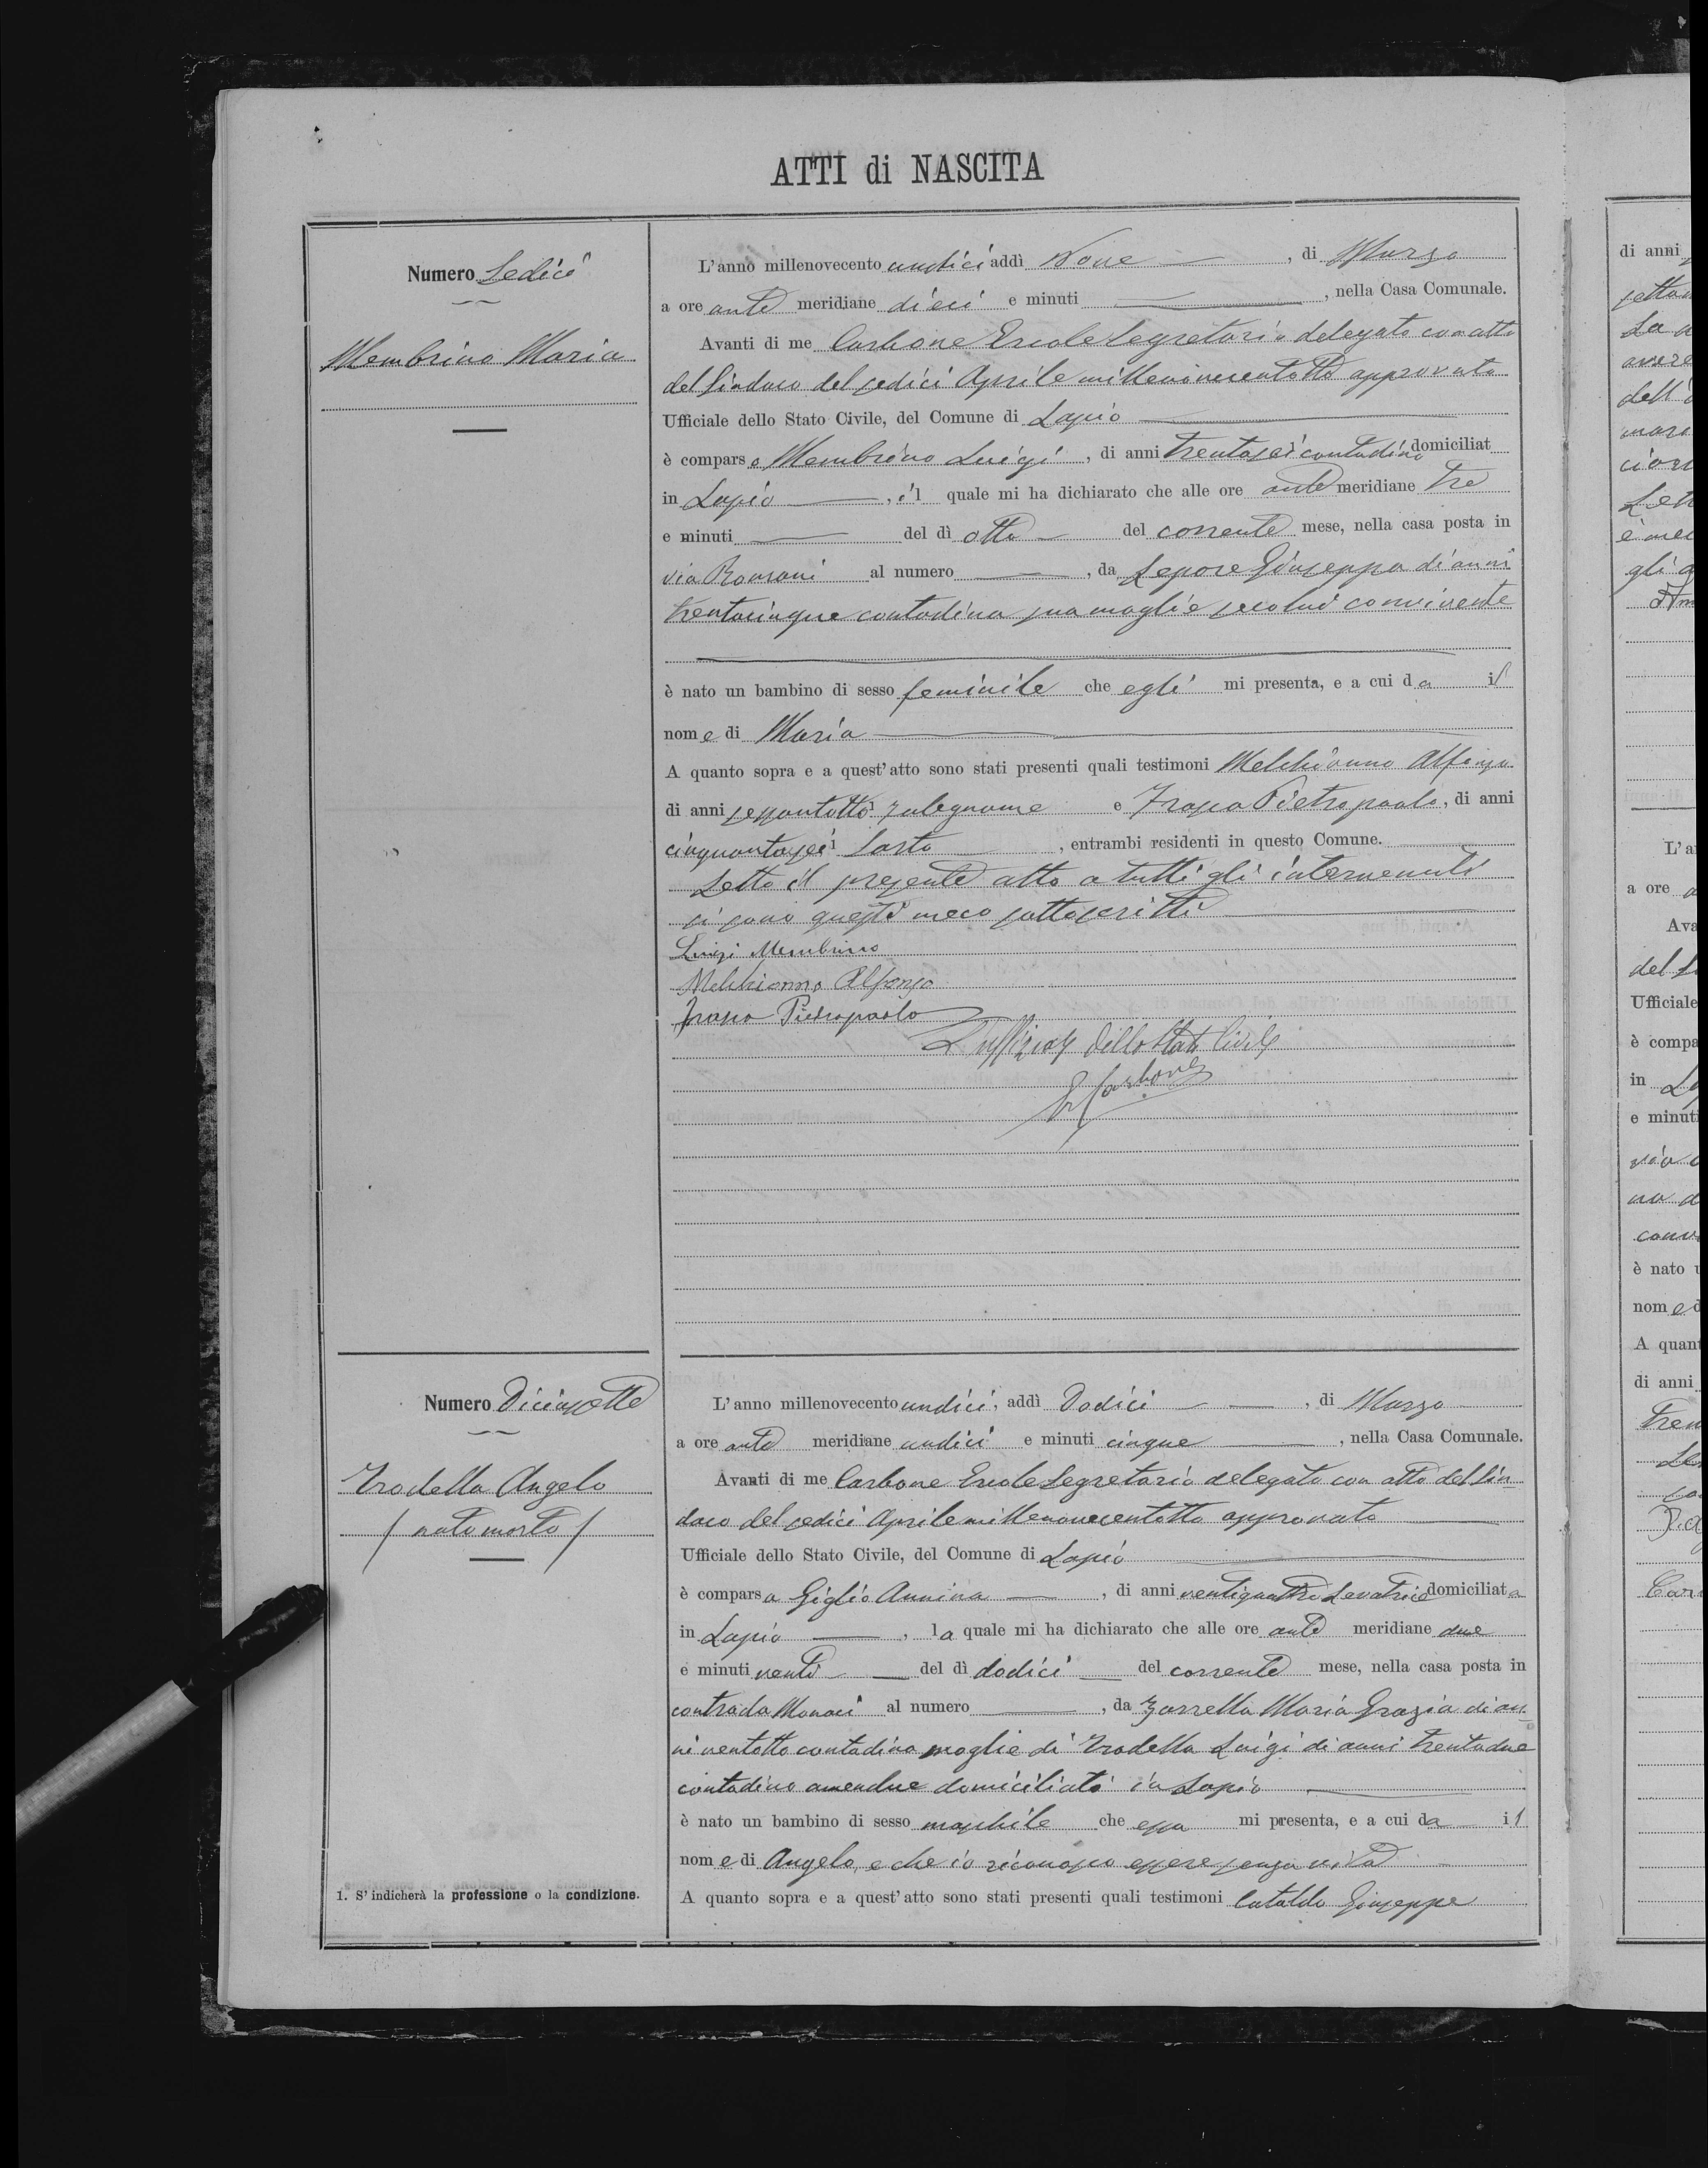 ATTI di NASCITA
Numero Sedici
Membrino Maria
L'anno millenovecento undici addì Nove, di Marzo
a ore ante meridiane dieci e minuti, nella Casa Comunale.
Avanti di me Carbone Ercole Segretario delegato con atto
del Sindaco del sedici Aprile millenovecentotto approvato
Ufficiale dello Stato Civile, del Comune di Lapio
è comparso Membrino Luigi, di anni trentasei contadino domiciliat
in Lapio, il quale mi ha dichiarato che alle ore ante meridiane tre
e minuti del dì otto del corrente mese, nella casa posta in
via Romani al numero, da Lepore Giuseppa di anni
trentacinque contadina sua moglie secolui convivente
è nato un bambino di sesso feminile che egli mi presenta, e a cui da il
nome di Maria
A quanto sopra e a quest'atto sono stati presenti quali testimoni Melchionno Alfonso
di anni sessantotto falegname e Trapa Pietropaolo, di anni
cinquantasei Sarto, entrambi residenti in questo Comune.
Letto il presente atto a tutti gli intervenuti
si sono questi meco sottoscritti
Luigi Membrino
Melchionno Alfonso
Pietropaolo
L'uffiziale dello Stato Civile
E. Carbone
Numero Diciassette
Trodella Angelo
/ nato morto /
L'anno millenovecento undici, addì Dodici, di Marzo
a ore ante meridiane undici e minuti cinque, nella Casa Comunale.
Avanti di me Carbone Ercole Segretario delegato con atto del Sin
daco del sedici Aprile millenovecentotto approvato
Ufficiale dello Stato Civile, del Comune di Lapio
è comparsa Giglio Annina, di anni ventiquattro Levatrice domiciliata
in Lapio, la quale mi ha dichiarato che alle ore ante meridiane due
e minuti venti del dì dodici del corrente mese, nella casa posta in
contrada Monaci al numero, da Zarrella Maria Grazia di an-
ni ventotto contadina moglie di Trodella Luigi di anni trentadue
contadino amendue domiciliati in Lapio
è nato un bambino di sesso maschile che essa mi presenta, e a cui da il
nome di Angelo, e che io riconosco essere senza vita
A quanto sopra e a quest'atto sono stati presenti quali testimoni Cataldo Giuseppe
1. S'indicherà la professione o la condizione.